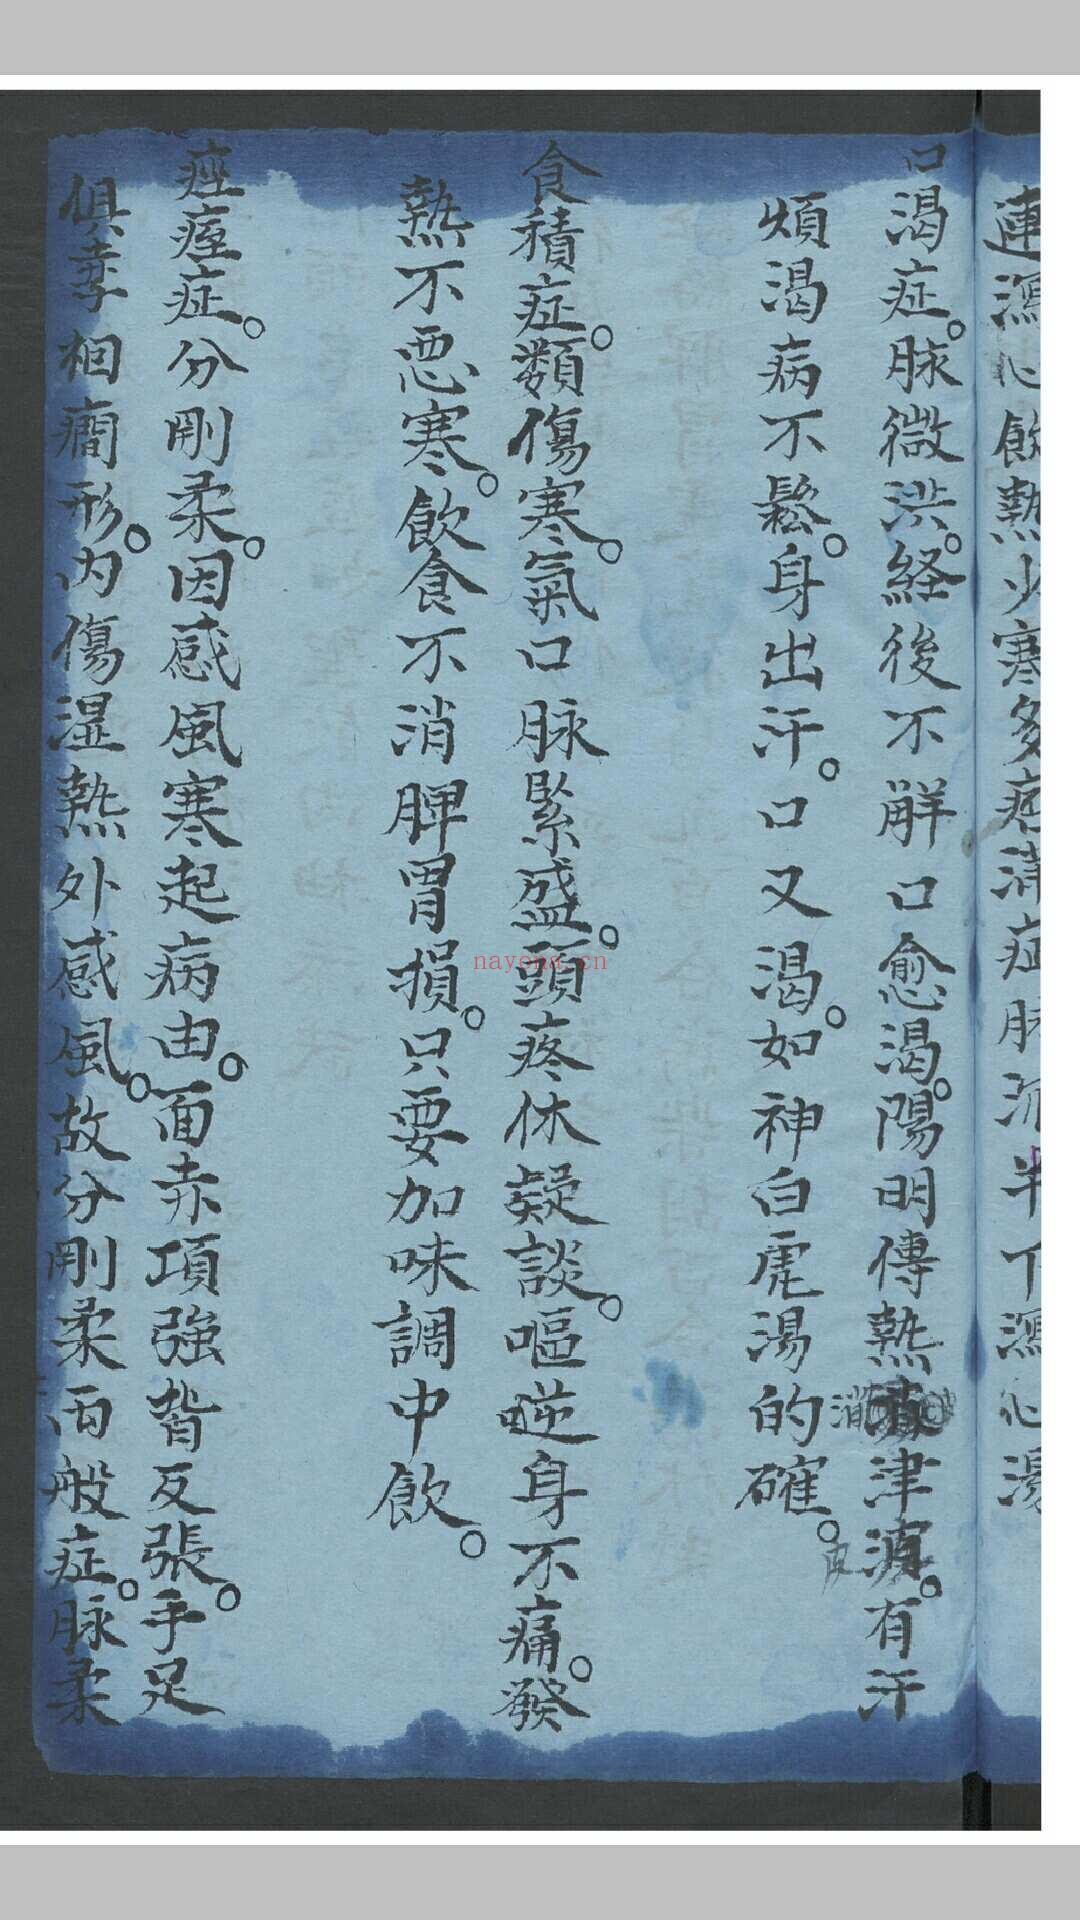 連瀉心飲熱少寒多痞滿症脉沉半下瀉心湯
口渴症。脉微洪。経後不解口愈渴。陽明傳熱津。有汗
煩渴病不鬆。身出汗。口又渴。如神白虎湯的確。
食積症。類傷寒。氣口脉緊盛。頭疼休疑談。嘔逆身不痛。發
熱不惡寒。飲食不消脾胃損。只要加味調中飲。
痙痙症。分剛柔。因感風寒起病由。面赤項強背反張。手足
俱相癎形。內傷濕熱外感風。故分剛柔両般症。脉柔
nayona.cn